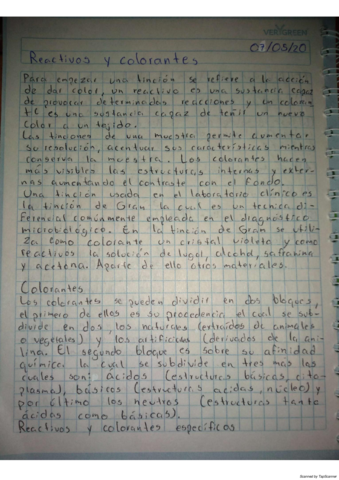 VERYGREEN
07/05/20
Reactivos y colorantes
Para empezar una tinción se refiere a la acción
de dar color, un reactivo es una sustancia capaz
de provocar determinadas reacciones y un coloran
te es una sustancia capaz de teñir un nuevo
color a un tejido.
Las tinciones de una muestra permite aumentar
su resolución, acentuar sus características mientras
conserva la muestra. Los colorantes hacen
más visibles las estructuras internas y exter-
nas aumentando el contraste con el fondo.
Una tinción usada en el laboratorio clínico es
la tinción de Gran la cual es un tecnica di-
ferencial comúnmente empleada en el diagnóstico
microbiológico. En la tinción de Gran se utili-
za como colorante un cristal violeta y como
reactivos la solución de lugol, alcohol, safranina
y acetona. Aparte de ello otros materiales.
Colorantes
Los colorantes se pueden dividir en dos bloques,
el primero de ellos es su procedencia el cual se sub-
divide en dos, los naturales (extraídos de animales
o vegetales) y los artificiales (derivados de la ani-
lina. El segundo bloque es sobre su afinidad
química; la cual se subdivide en tres mas las
cuales son: ácidos (estructuras básicas, cito-
plasma), básicos (estructuras acidas, núcleo) y
por último los neutros (estructuras tanto
ácidos como básicas).
Reactivos y colorantes específicos
Scanned by TapScanner